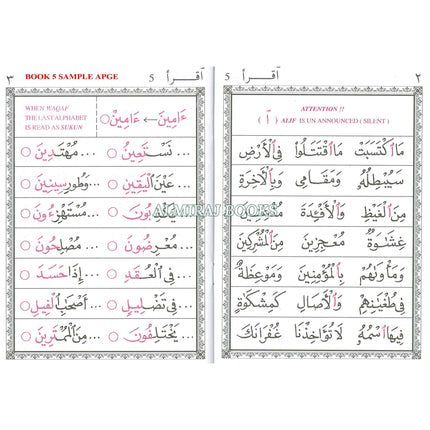 BOOK 5 SAMPLE APGE
٢ اقرأ 5
ATTENTION !!
( أ ) ALIF IS UN ANNOUNCED ( SILENT )
مَا اكْتَسَبَتْ مَا اقْتَتَلُوْا فِي الْأَرْضِ
سَيُبْطِلُهٗ وَمَقَامِي وَبِالْآخِرَةِ
مِنَ الْغَيْظِ وَالْأَفْئِدَةَ
غِشَاوَةٌ مُعٰجِزِينَ مِنَ الْمُشْرِكِينَ
وَمَأْوٰىهُمْ بِالْمُؤْمِنِينَ وَمَوْعِظَةٌ
فِي طُغْيَانِهِمْ وَالْآصَالِ كَمِشْكَاةٍ
فِيهَا اسْمُهٗ لَا تُؤَاخِذْنَا غُفْرَانَكَ
٣ اقرأ 5
WHEN WAQAF
THE LAST ALPHABET
IS READ AS SUKUN
ءَامِينَ ← ءَامِينْ
... نَسْتَعِينُ ... مُهْتَدِينَ
... عَيْنَ الْيَقِينِ ... وَطُورِ سِينِينَ
... مُسْتَهْزِءُونَ
... مُعْرِضُونَ ... مُصْلِحُونَ
... فِي الْعُقَدِ ... إِذَا حَسَدَ
... فِي تَضْلِيلٍ ... أَصْحَابُ الْفِيلِ
... يَخْتَلِفُونَ ... مِنَ الْمُمْتَرِينَ
ALMIRAJ BOOKS